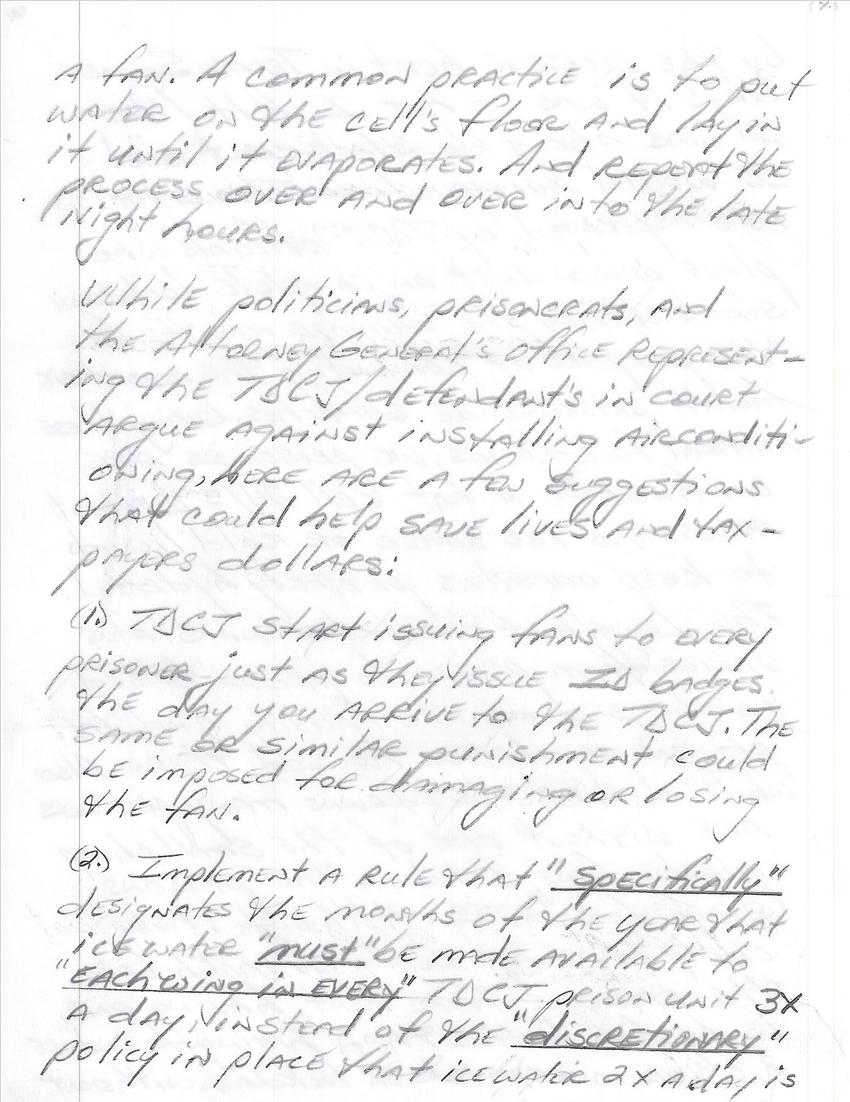 a fan. A common practice is to put
water on the cell's floor and lay in
it until it evaporates. And repeat the
process over and over into the late
night hours.
While politicians, prisoncrats, and
the Attorney General's office represent-
ing the TDCJ/defendant's in court
argue against installing airconditi-
oning, here are a few suggestions
that could help save lives and tax-
payers dollars:
(1.) TDCJ start issuing fans to every
prisoner just as they issue ID badges
the day you arrive to the TDCJ. The
same or similar punishment could
be imposed for damaging or losing
the fan.
(2.) Implement a rule that "specifically"
designates the months of the year that
ice water "must" be made available to
"each wing in every" TDCJ prison unit 3x
a day, instead of the "discretionary"
policy in place that ice water 2x a day is